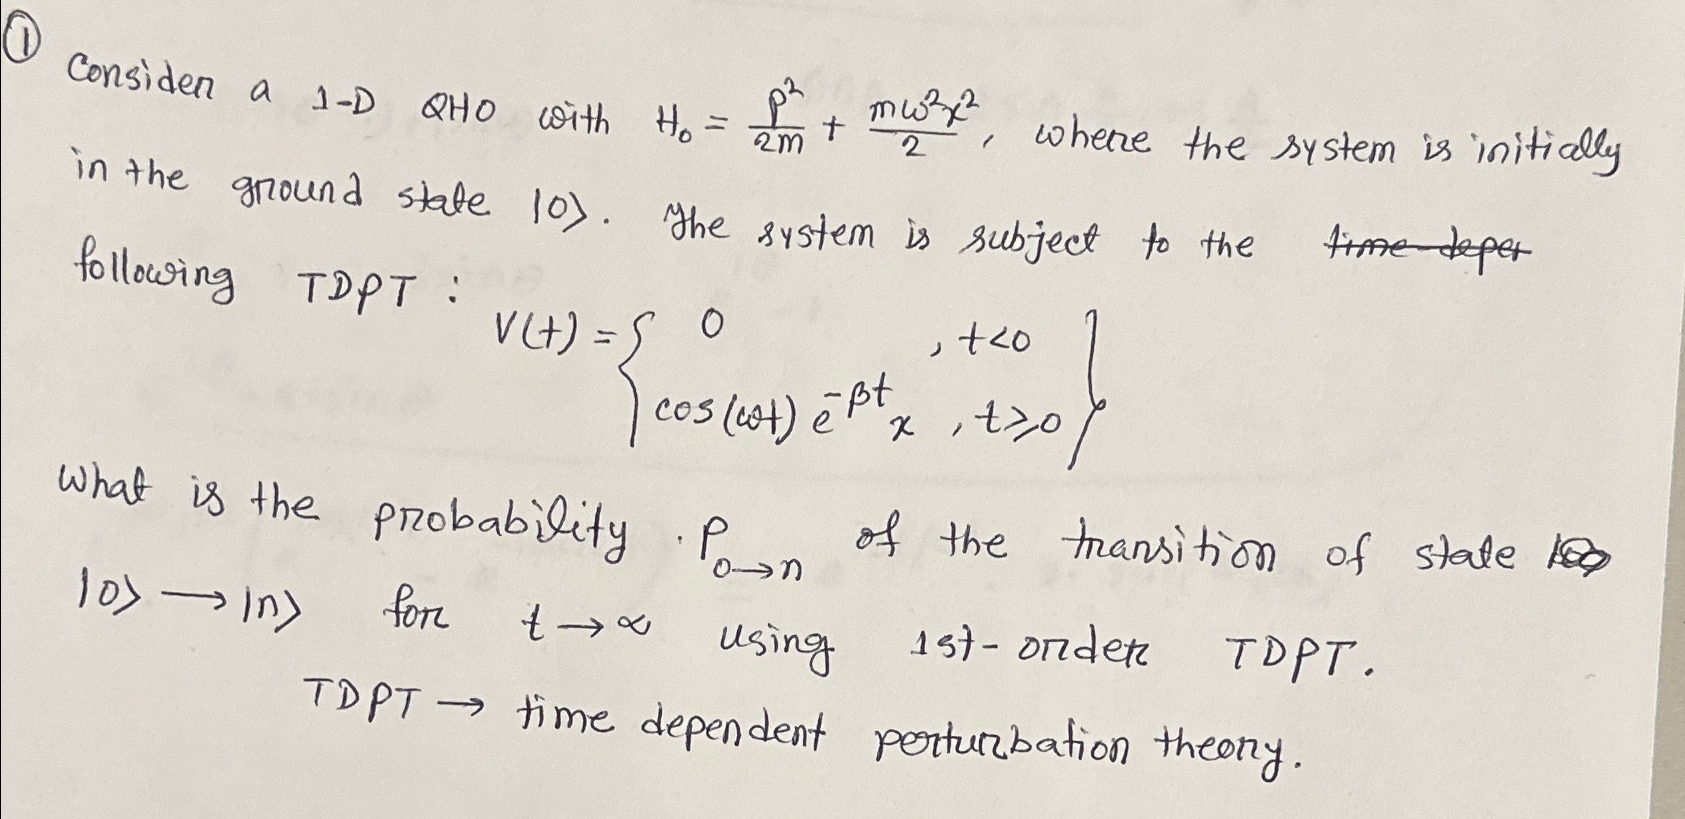 ① Consider a 1-D QHO with H₀ = p²/2m + mω²x²/2, where the system is initially
in the ground state |0>. The system is subject to the time-deper
following TDPT :
V(t) = { 0 , t<0
cos(ωt) e^{-βt} x , t≥0 }
What is the probability P_{0→n} of the transition of state
|0> → |n> for t → ∞ using 1st-order TDPT.
TDPT → time dependent perturbation theory.